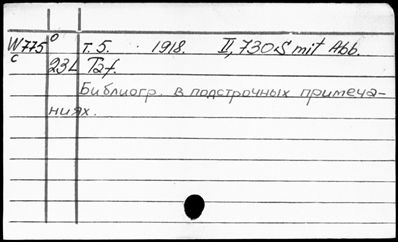 W775 o т. 5. 1918. II, 730 S mit Abb.
c 23 L Taf.
Библиогр. в подстрочных примеча-
ниях.